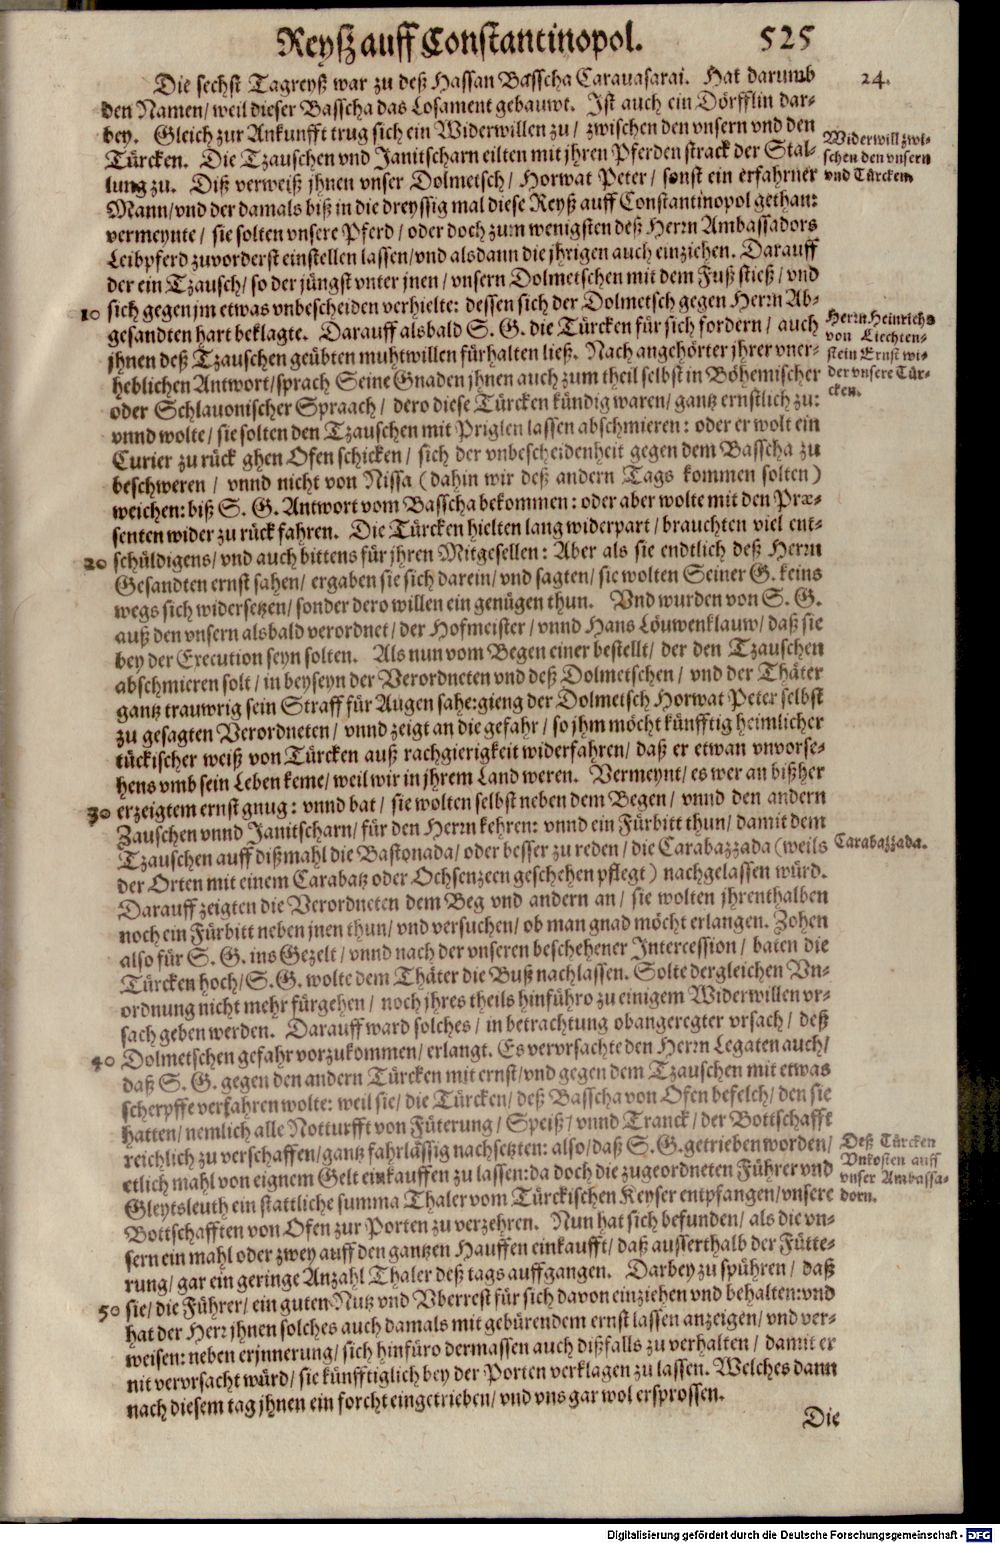 Reyß auff Constantinopol. 525
Die sechst Tagreyß war zu deß Hassan Basscha Carauasarai. Hat darumb
24.
den Namen/ weil dieser Basscha das Losament gebauwt. Ist auch ein Dörfflin dar-
bey. Gleich zur Ankunfft trug sich ein Widerwillen zu/ zwischen den vnsern vnd den
Türcken. Die Tzauschen vnd Janitscharn eilten mit jhren Pferden strack der Stal-
lung zu. Diß verweiß jhnen vnser Dolmetsch/ Horwat Peter/ sonst ein erfahrner
Mann/ vnd der damals biß in die dreyssig mal diese Reyß auff Constantinopol gethan:
Widerwill zwi-
schen den vnsern
vnd Türcken.
vermeynte/ sie solten vnsere Pferd/ oder doch zum wenigsten deß Herrn Ambassadors
Leibpferd zuvorderst einstellen lassen/ vnd alsdann die jhrigen auch einziehen. Darauff
der ein Tzausch/ so der jüngst vnter jnen/ vnsern Dolmetschen mit dem Fuß stieß/ vnd
10 sich gegen jm etwas vnbescheiden verhielte: dessen sich der Dolmetsch gegen Herrn Ab-
gesandten hart beklagte. Darauff alsbald S. G. die Türcken für sich fordern/ auch
jhnen deß Tzauschen geübten muhtwillen fürhalten ließ. Nach angehörter jhrer vner-
heblichen Antwort/ sprach Seine Gnaden jhnen auch zum theil selbst in Böhemischer
oder Schlauonischer Spraach/ dero diese Türcken kündig waren/ gantz ernstlich zu:
Herrn Heinrichs
von Liechten-
stein Ernst wi-
der vnsere Tür-
cken.
vnnd wolte/ sie solten den Tzauschen mit Priglen lassen abschmieren: oder er wolt ein
Curier zu rück ghen Ofen schicken/ sich der vnbescheidenheit gegen dem Basscha zu
beschweren/ vnnd nicht von Nissa (dahin wir deß andern Tags kommen solten)
weichen: biß S. G. Antwort vom Basscha bekommen: oder aber wolte mit den Præ-
senten wider zu rück fahren. Die Türcken hielten lang widerpart/ brauchten viel ent-
20 schüldigens/ vnd auch bittens für jhren Mitgesellen: Aber als sie endtlich deß Herrn
Gesandten ernst sahen/ ergaben sie sich darein/ vnd sagten/ sie wolten Seiner G. keins
wegs sich widersetzen/ sonder dero willen ein genügen thun. Vnd wurden von S. G.
auß den vnsern alsbald verordnet/ der Hofmeister/ vnnd Hans Löuwenklauw/ daß sie
bey der Execution seyn solten. Als nun vom Begen einer bestellt/ der den Tzauschen
abschmieren solt/ in beyseyn der Verordneten vnd deß Dolmetschen/ vnd der Thäter
gantz trauwrig sein Straff für Augen sahe: gieng der Dolmetsch Horwat Peter selbst
zu gesagten Verordneten/ vnnd zeigt an die gefahr/ so jhm möcht künfftig heimlicher
tückischer weiß von Türcken auß rachgierigkeit widerfahren/ daß er etwan vnvorse-
hens vmb sein Leben keme/ weil wir in jhrem Land weren. Vermeynt/ es wer an bißher
30 erzeigtem ernst gnug: vnnd bat/ sie wolten selbst neben dem Begen/ vnnd den andern
Zauschen vnnd Janitscharn/ für den Herrn kehren: vnnd ein Fürbitt thun/ damit dem
Tzauschen auff dißmahl die Bastonada/ oder besser zu reden/ die Carabazzada (weils
Carabazzada.
der Orten mit einem Carabatz oder Ochsenzeen geschehen pflegt) nachgelassen würd.
Darauff zeigten die Verordneten dem Beg vnd andern an/ sie wolten jhrenthalben
noch ein Fürbitt neben jnen thun/ vnd versuchen/ ob man gnad möcht erlangen. Zohen
also für S. G. ins Gezelt/ vnnd nach der vnseren beschehener Intercession/ baten die
Türcken hoch/ S. G. wolte dem Thäter die Buß nachlassen. Solte dergleichen Vn-
ordnung nicht mehr fürgehen/ noch jhres theils hinführo zu einigem Widerwillen vr-
sach geben werden. Darauff ward solches/ in betrachtung obangeregter vrsach/ deß
40 Dolmetschen gefahr vorzukommen/ erlangt. Es vervrsachte den Herrn Legaten auch/
daß S. G. gegen den andern Türcken mit ernst/ vnd gegen dem Tzauschen mit etwas
scherpffe verfahren wolte: weil sie/ die Türcken/ deß Basscha von Ofen befelch/ den sie
hatten/ nemlich alle Notturfft von Füterung/ Speiß/ vnnd Tranck/ der Bottschafft
reichlich zu verschaffen/ gantz fahrlässig nachsetzten: also/ daß S. G. getrieben worden/
etlich mahl von eignem Gelt einkauffen zu lassen: da doch die zugeordneten Führer vnd
Gleytsleuth ein stattliche summa Thaler vom Türckischen Keyser entpfangen/ vnsere
Deß Türcken
Vnkosten auff
vnser Ambassa-
dorn.
Bottschafften von Ofen zur Porten zu verzehren. Nun hat sich befunden/ als die vn-
sern ein mahl oder zwey auff den gantzen Hauffen einkaufft/ daß ausserthalb der Fütte-
rung/ gar ein geringe Anzahl Thaler deß tags auffgangen. Darbey zu spühren/ daß
50 sie/ die Führer/ ein guten Nutz vnd Vberrest für sich davon einziehen vnd behalten: vnd
hat der Herr jhnen solches auch damals mit gebürendem ernst lassen anzeigen/ vnd ver-
weisen: neben erjnnerung/ sich hinfüro dermassen auch dißfalls zu verhalten/ damit er
nit vervrsacht würd/ sie künfftiglich bey der Porten verklagen zu lassen. Welches dann
nach diesem tag jhnen ein forcht eingetrieben/ vnd vns gar wol ersprossen.
Die
Digitalisierung gefördert durch die Deutsche Forschungsgemeinschaft - DFG